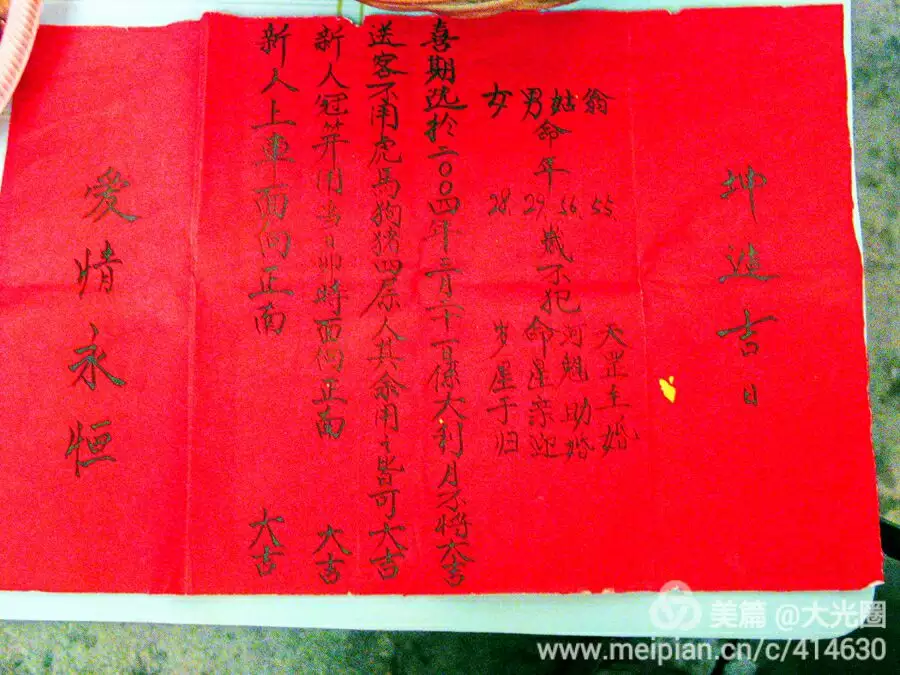 坤造吉日
翁 55 天罡主婚
姑 56 河魁助婚
男命年 29 岁不犯命星亲迎
女 28 岁星于归
喜期选于二〇〇四年三月二十一日係大利月不将大吉
送客不用虎馬狗猪四属人其余用之皆可大吉
新人冠笄用当日卯時面向正南 大吉
新人上車面向正南 大吉
愛情永恒
美篇 @大光圈
www.meipian.cn/c/414630